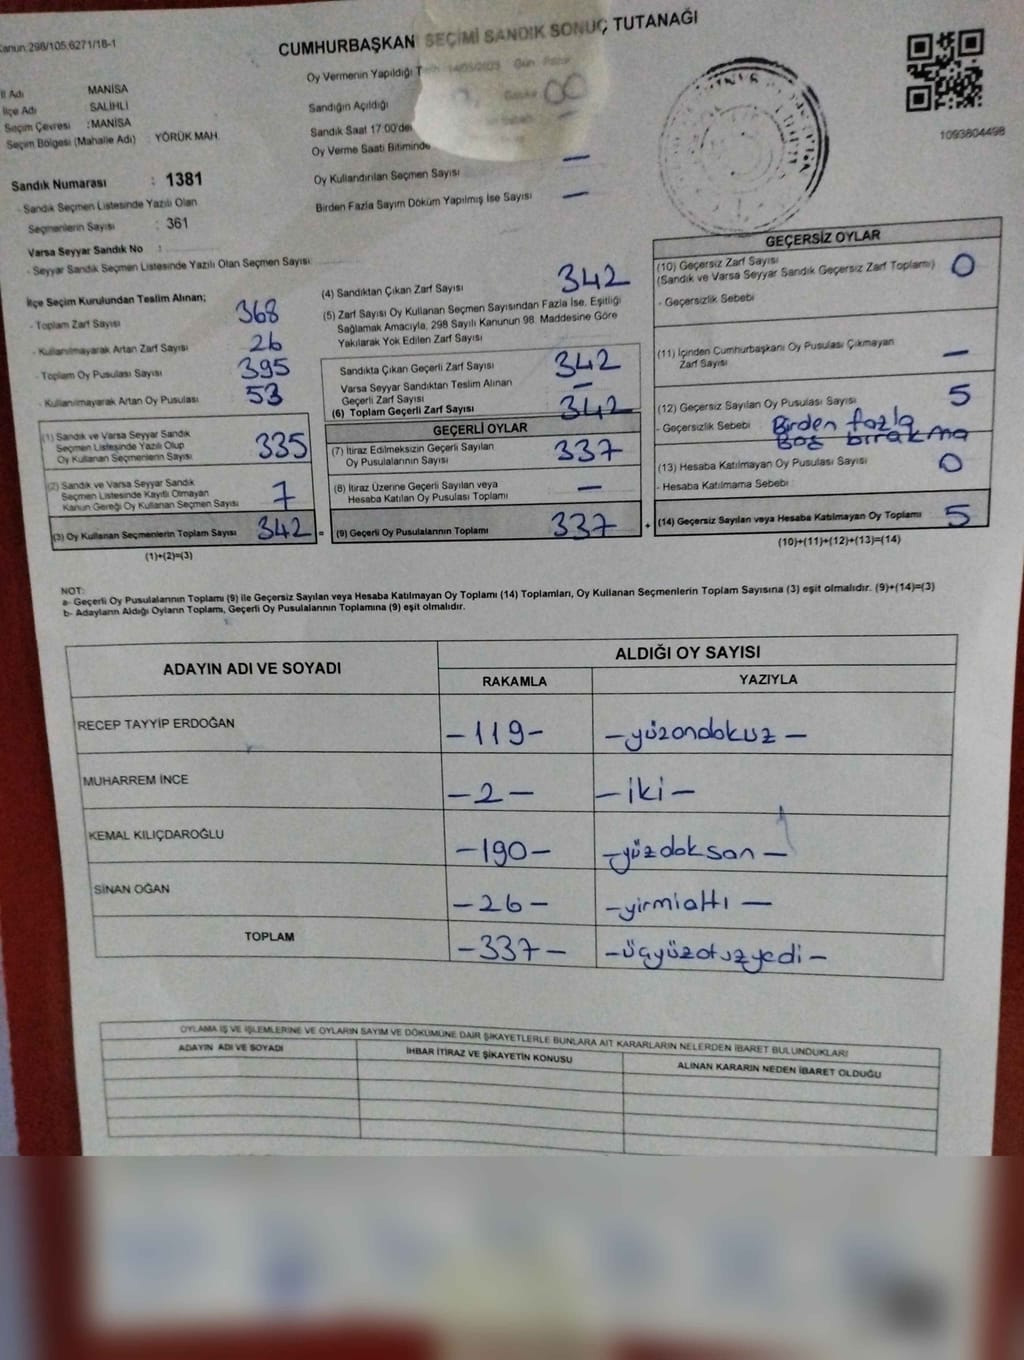 Kanun:298/105,6271/18-1
CUMHURBAŞKANI SEÇİMİ SANDIK SONUÇ TUTANAĞI
1093804498
İl Adı MANİSA
İlçe Adı SALİHLİ
Seçim Çevresi : MANİSA
Seçim Bölgesi (Mahalle Adı) : YÖRÜK MAH.
Sandık Numarası : 1381
- Sandık Seçmen Listesinde Yazılı Olan
Seçmenlerin Sayısı : 361
Varsa Seyyar Sandık No :
- Seyyar Sandık Seçmen Listesinde Yazılı Olan Seçmen Sayısı:
Oy Vermenin Yapıldığı
Sandığın Açıldığı
Sandık Saat 17:00'de
Oy Verme Saati Bitiminde
Oy Kullandırılan Seçmen Sayısı —
Birden Fazla Sayım Döküm Yapılmış İse Sayısı —
İlçe Seçim Kurulundan Teslim Alınan;
- Toplam Zarf Sayısı 368
- Kullanılmayarak Artan Zarf Sayısı 26
- Toplam Oy Pusulası Sayısı 395
- Kullanılmayarak Artan Oy Pusulası 53
(1) Sandık ve Varsa Seyyar Sandık
Seçmen Listesinde Yazılı Olup
Oy Kullanan Seçmenlerin Sayısı 335
(2) Sandık ve Varsa Seyyar Sandık
Seçmen Listesinde Kayıtlı Olmayan
Kanun Gereği Oy Kullanan Seçmen Sayısı 7
(3) Oy Kullanan Seçmenlerin Toplam Sayısı 342 =
(1)+(2)=(3)
(4) Sandıktan Çıkan Zarf Sayısı 342
(5) Zarf Sayısı Oy Kullanan Seçmen Sayısından Fazla İse, Eşitliği
Sağlamak Amacıyla, 298 Sayılı Kanunun 98. Maddesine Göre
Yakılarak Yok Edilen Zarf Sayısı
Sandıkta Çıkan Geçerli Zarf Sayısı 342
Varsa Seyyar Sandıktan Teslim Alınan
Geçerli Zarf Sayısı —
(6) Toplam Geçerli Zarf Sayısı 342
GEÇERLİ OYLAR
(7) İtiraz Edilmeksizin Geçerli Sayılan
Oy Pusulalarının Sayısı 337
(8) İtiraz Üzerine Geçerli Sayılan veya
Hesaba Katılan Oy Pusulası Toplamı —
(9) Geçerli Oy Pusulalarının Toplamı 337 +
GEÇERSİZ OYLAR
(10) Geçersiz Zarf Sayısı 0
(Sandık ve Varsa Seyyar Sandık Geçersiz Zarf Toplamı)
- Geçersizlik Sebebi
(11) İçinden Cumhurbaşkanı Oy Pusulası Çıkmayan
Zarf Sayısı —
(12) Geçersiz Sayılan Oy Pusulası Sayısı 5
- Geçersizlik Sebebi Birden fazla
Boş bırakma
(13) Hesaba Katılmayan Oy Pusulası Sayısı 0
- Hesaba Katılmama Sebebi
(14) Geçersiz Sayılan veya Hesaba Katılmayan Oy Toplamı 5
(10)+(11)+(12)+(13)=(14)
NOT:
a- Geçerli Oy Pusulalarının Toplamı (9) ile Geçersiz Sayılan veya Hesaba Katılmayan Oy Toplamı (14) Toplamları, Oy Kullanan Seçmenlerin Toplam Sayısına (3) eşit olmalıdır. (9)+(14)=(3)
b- Adayların Aldığı Oyların Toplamı, Geçerli Oy Pusulalarının Toplamına (9) eşit olmalıdır.
ADAYIN ADI VE SOYADI ALDIĞI OY SAYISI
RAKAMLA YAZIYLA
RECEP TAYYİP ERDOĞAN -119- -yüzondokuz-
MUHARREM İNCE -2- -iki-
KEMAL KILIÇDAROĞLU -190- -yüzdoksan-
SİNAN OĞAN -26- -yirmialtı-
TOPLAM -337- -üçyüzotuzyedi-
OYLAMA İŞ VE İŞLEMLERİNE VE OYLARIN SAYIM VE DÖKÜMÜNE DAİR ŞİKAYETLERLE BUNLARA AİT KARARLARIN NELERDEN İBARET BULUNDUKLARI
ADAYIN ADI VE SOYADI İHBAR İTİRAZ VE ŞİKAYETİN KONUSU ALINAN KARARIN NEDEN İBARET OLDUĞU